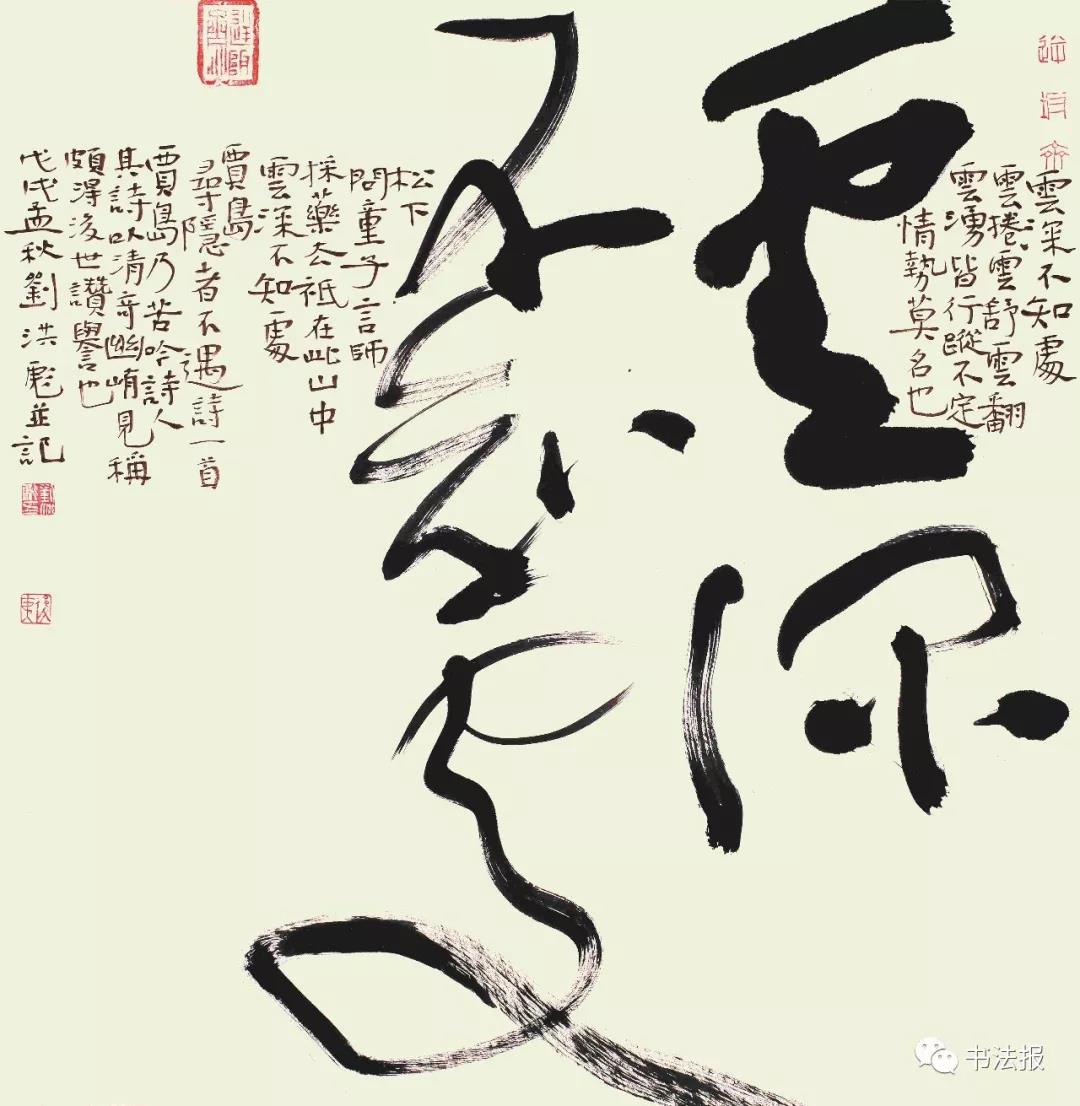 雲深不知處
雲捲雲舒雲翻
雲湧皆行蹤不定
情勢莫名也
雲深
不知處
松下
問童子言師
採藥去祇在此山中
雲深不知處
賈島
尋隱者不遇詩一首
賈島乃苦吟詩人
其詩以清奇幽峭見稱
頗得後世讚譽也
戊戌孟秋劉洪彪並記
书法报